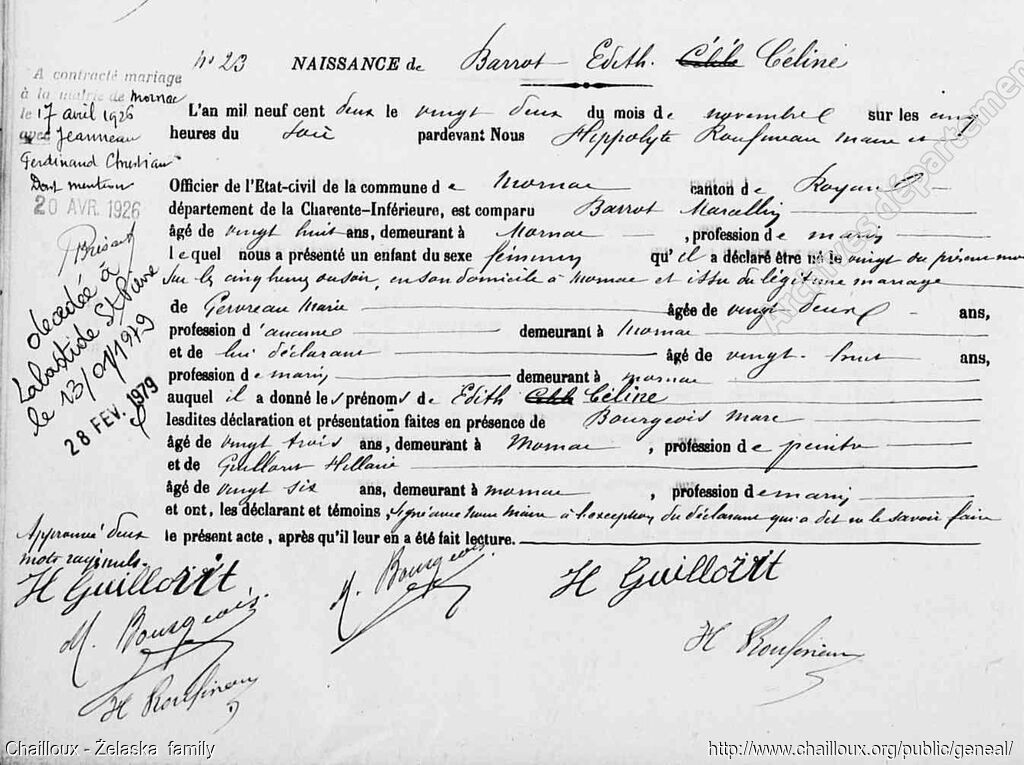 no 23 NAISSANCE de Barrot Edith. Célile Céline
A contracté mariage
à la mairie de Mornac
le 17 avril 1926
avec Jeanneau
Ferdinand Christian
Dont mention
20 AVR. 1926
décédée à
Labastide St Pierre
le 13/01/1979
28 FEV. 1979
L'an mil neuf cent deux le vingt deux du mois de novembre sur les cinq
heures du soir pardevant Nous Hippolyte Roufineau maire et
Officier de l'Etat-civil de la commune de Mornac canton de Royan
département de la Charente-Inférieure, est comparu Barrot Marcellin
âgé de vingt huit ans, demeurant à Mornac, profession de marin
lequel nous a présenté un enfant du sexe féminin qu'il a déclaré être né le vingt du présent mois
sur les cinq heures du soir, en son domicile à Mornac et issu du légitime mariage
de Gervreau Marie âgée de vingt deux ans,
profession d'aucune demeurant à Mornac
et de lui déclarant âgé de vingt-huit ans,
profession de marin demeurant à Mornac
auquel il a donné les prénoms de Edith Célile Céline
lesdites déclaration et présentation faites en présence de Bourgeois Marc
âgé de vingt trois ans, demeurant à Mornac, profession de peintre
et de Guillorit Hillaire
âgé de vingt six ans, demeurant à Mornac, profession de marin
et ont, les déclarant et témoins, signé avec nous Maire à l'exception du déclarant qui a dit ne le savoir faire
le présent acte, après qu'il leur en a été fait lecture.
Approuvé deux
mots rayés nuls.
H Guillorit M. Bourgeois H Guillorit
M. Bourgeois H Roufineau
H Roufineau
Archives départemen
Chailloux - Želaska family http://www.chailloux.org/public/geneal/